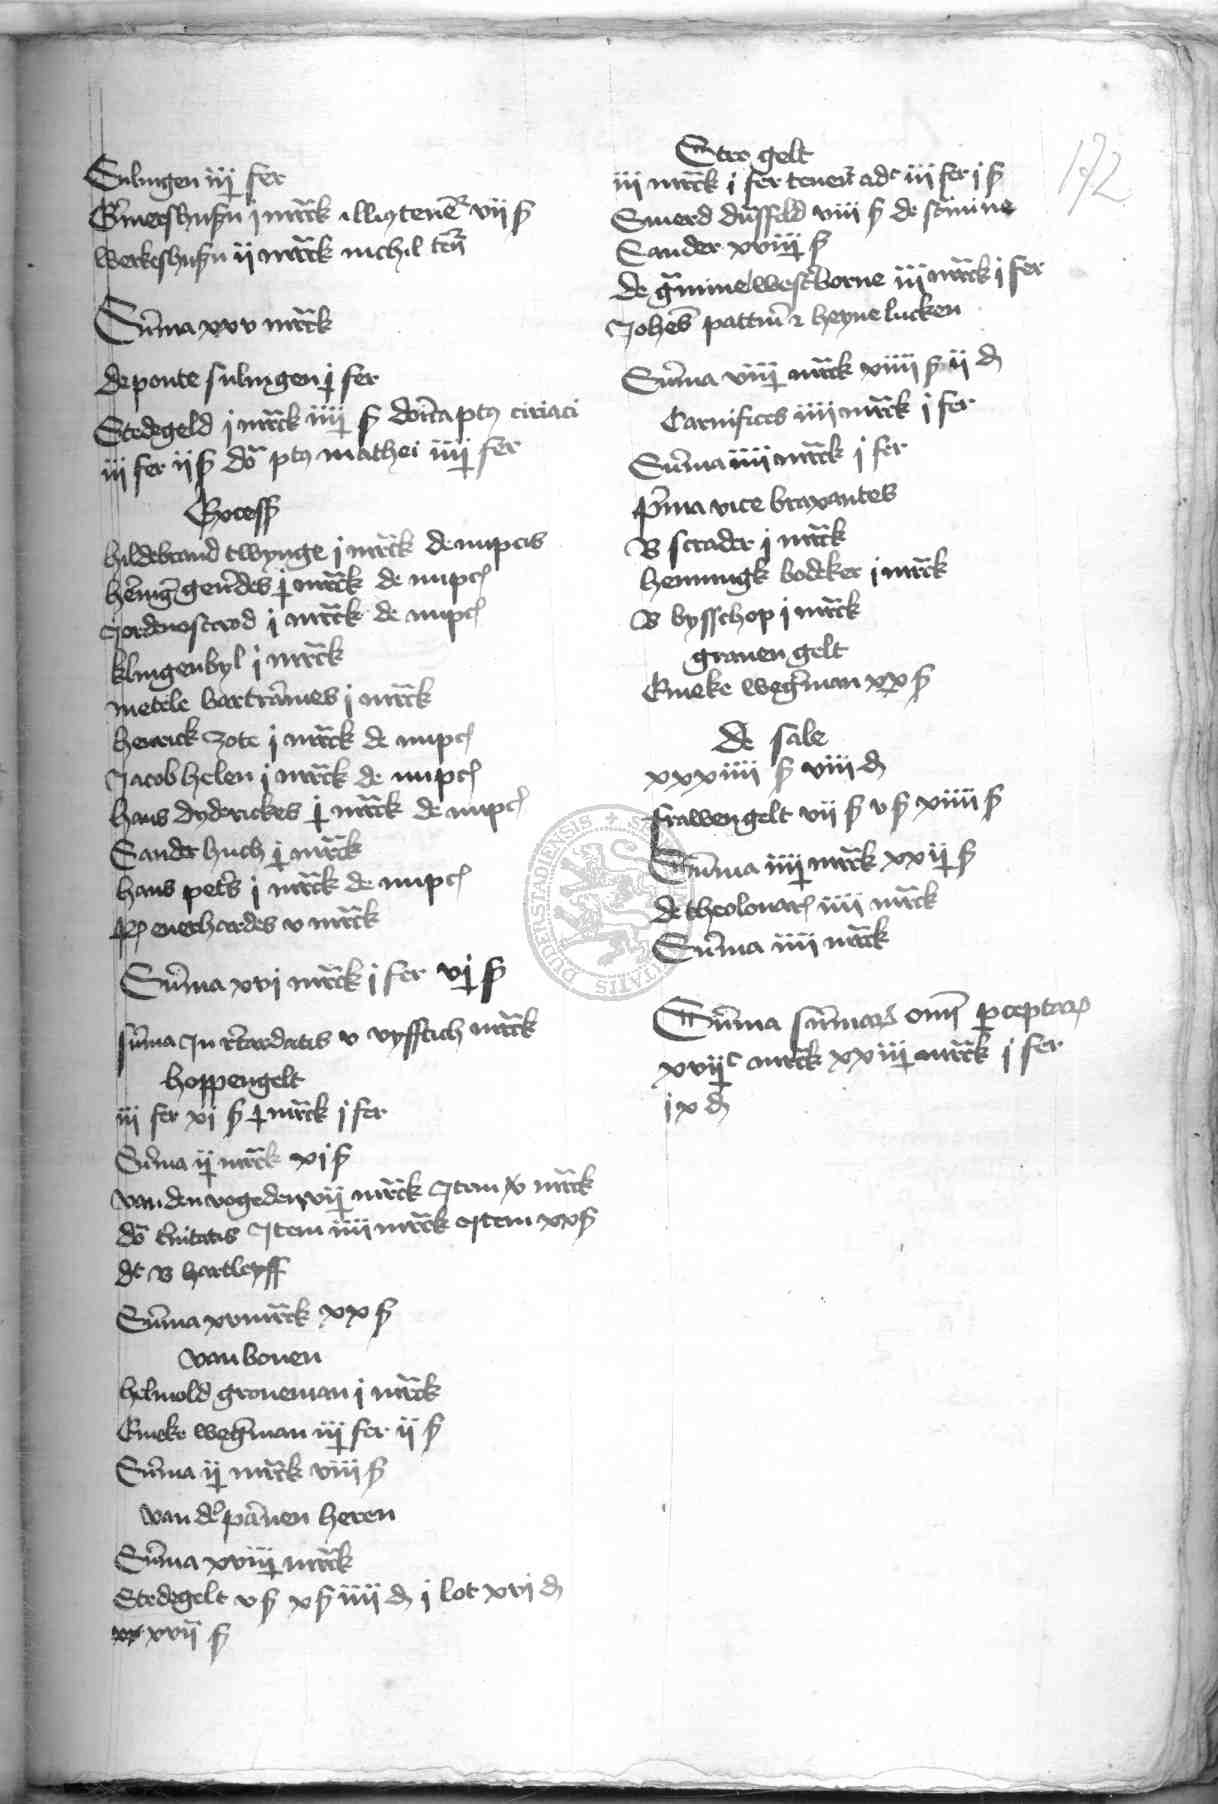 Sulingen iij fer
Gimershusen j marck illius tener vij ß
Werkeshusen ij marck nichil tener
Summa xxv marck
de ponte sulingen j fer
Stedegeld j marck iiij ß domica post ciriaci
iij fer ij ß do post mathei iiij fer
Excess
hildebrand twynge j marck de nupciis
henig gerndes j marck de nupc
Jorden j marck de nupc
klingenbyl j marck
metele bartrames j marck
henrick zote j marck de nupc
Jacob helen j marck de nupc
hans dyderickes j marck de nupc
Sander huch j marck
hans peters j marck de nupc
everhardes v marck
Summa xvj marck j fer vj ß
summa In retardatis v vyfftich marck
hoppengelt
iij fer xj ß j marck j fer
Summa ij marck xj ß
van den vogeden vij marck Item v marck
do trinitatis Item iiij marck Item xx ß
dt B hartleyff
Summa xvj marck xx ß
van boven
helmold groneman j marck
Emeke wegerman iij fer ij ß
Summa ij marck viij ß
van der pannen heren
Summa xviij marck
Stedegelt v ß x ß iiij d j lot xvj d
xvij ß
172
Stro gelt
iij marck j fer tenentur adc iij fer j ß
Smerd dusfeld viij ß de semine
Sander xviij ß
de gramine westerborne iij marck j fer
Johes pattin et heyne lucken
Summa viij marck xiiij ß ij d
Carnifices iiij marck j fer
Summa iiij marck j fer
prima vice braxantes
B scrader j marck
hennungk bodeker j marck
B bysschop j marck
graven gelt
Emeke wegerman xx ß
de sale
xxxiiij ß viij d
frawengelt vij ß v ß xiiij ß
Summa iiij marck xxij ß
de theolonar iiij marck
Summa iiij marck
Summa summarum omnium perceptorum
xvijc marck xxiij marck j fer
ix d